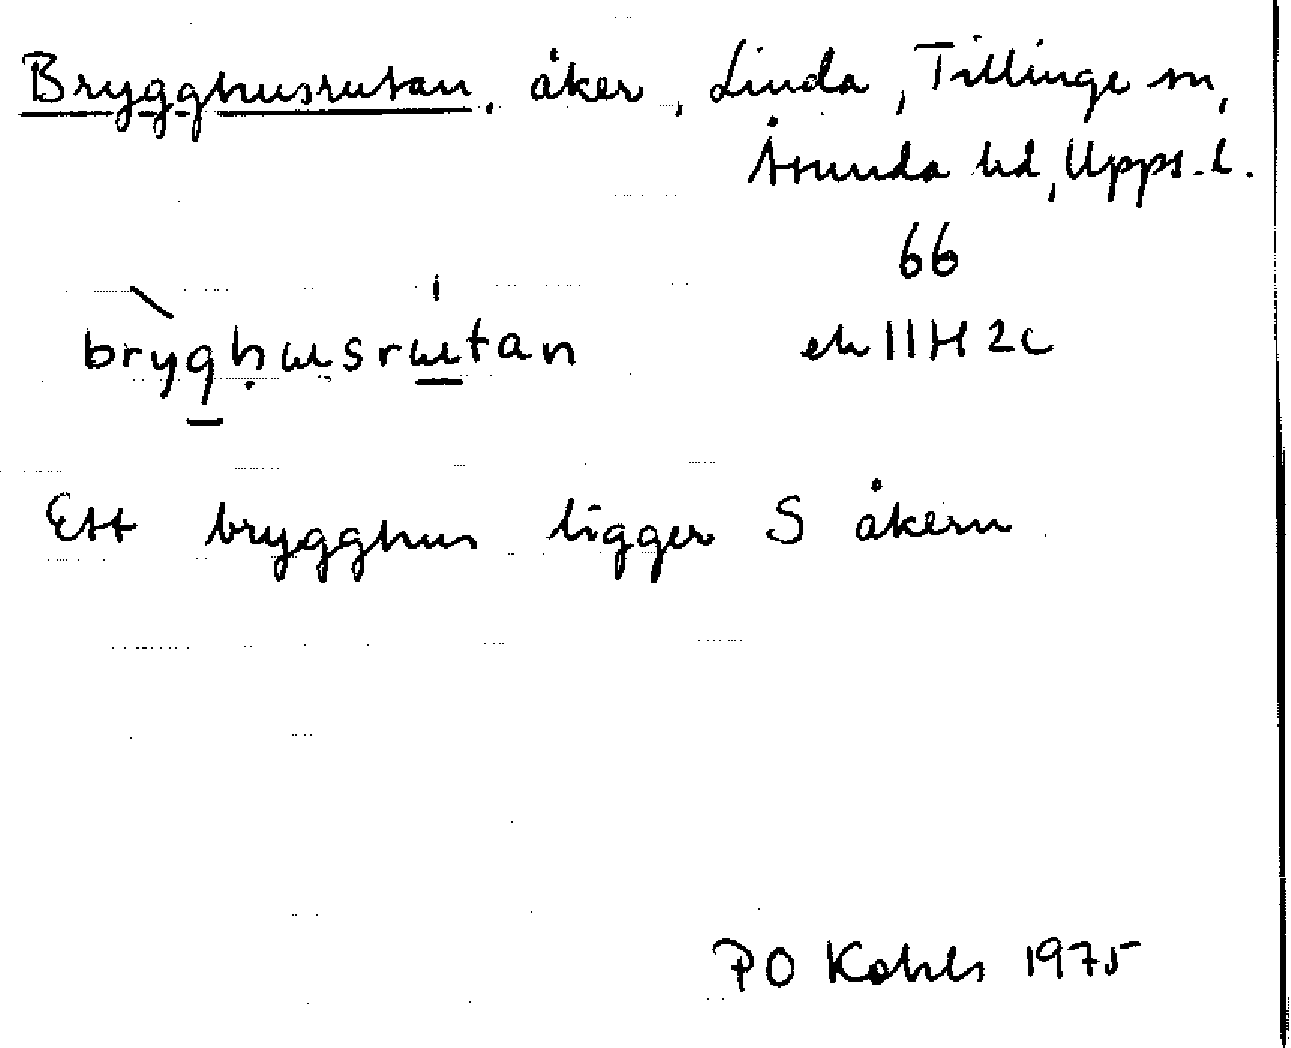 Brygghusrutan, åker, Linda, Tillinge sn,
Åsunda hd, Upps. l.
66
bryghusrutan ek 11H 2c
Ett brygghus ligger S åkern
PO 1975